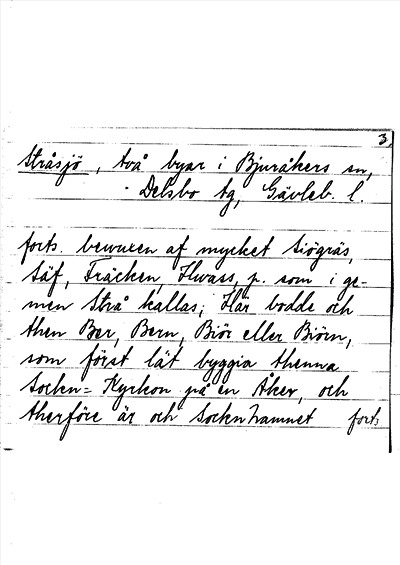 3
Stråsjö, två byar i Bjuråkers sn,
Delsbo tg, Gävleb. l.
forts. bewuxen af mycket siögräs,
säf, Fräcken, Hwass, p. som i ge-
men Strå kallas; Här bodde och
then Ber, Bern, Biör eller Biörn,
som först lät byggia thenna
Sockn= Kyrkon på en Åker, och
therföre är och Socknhamnet forts